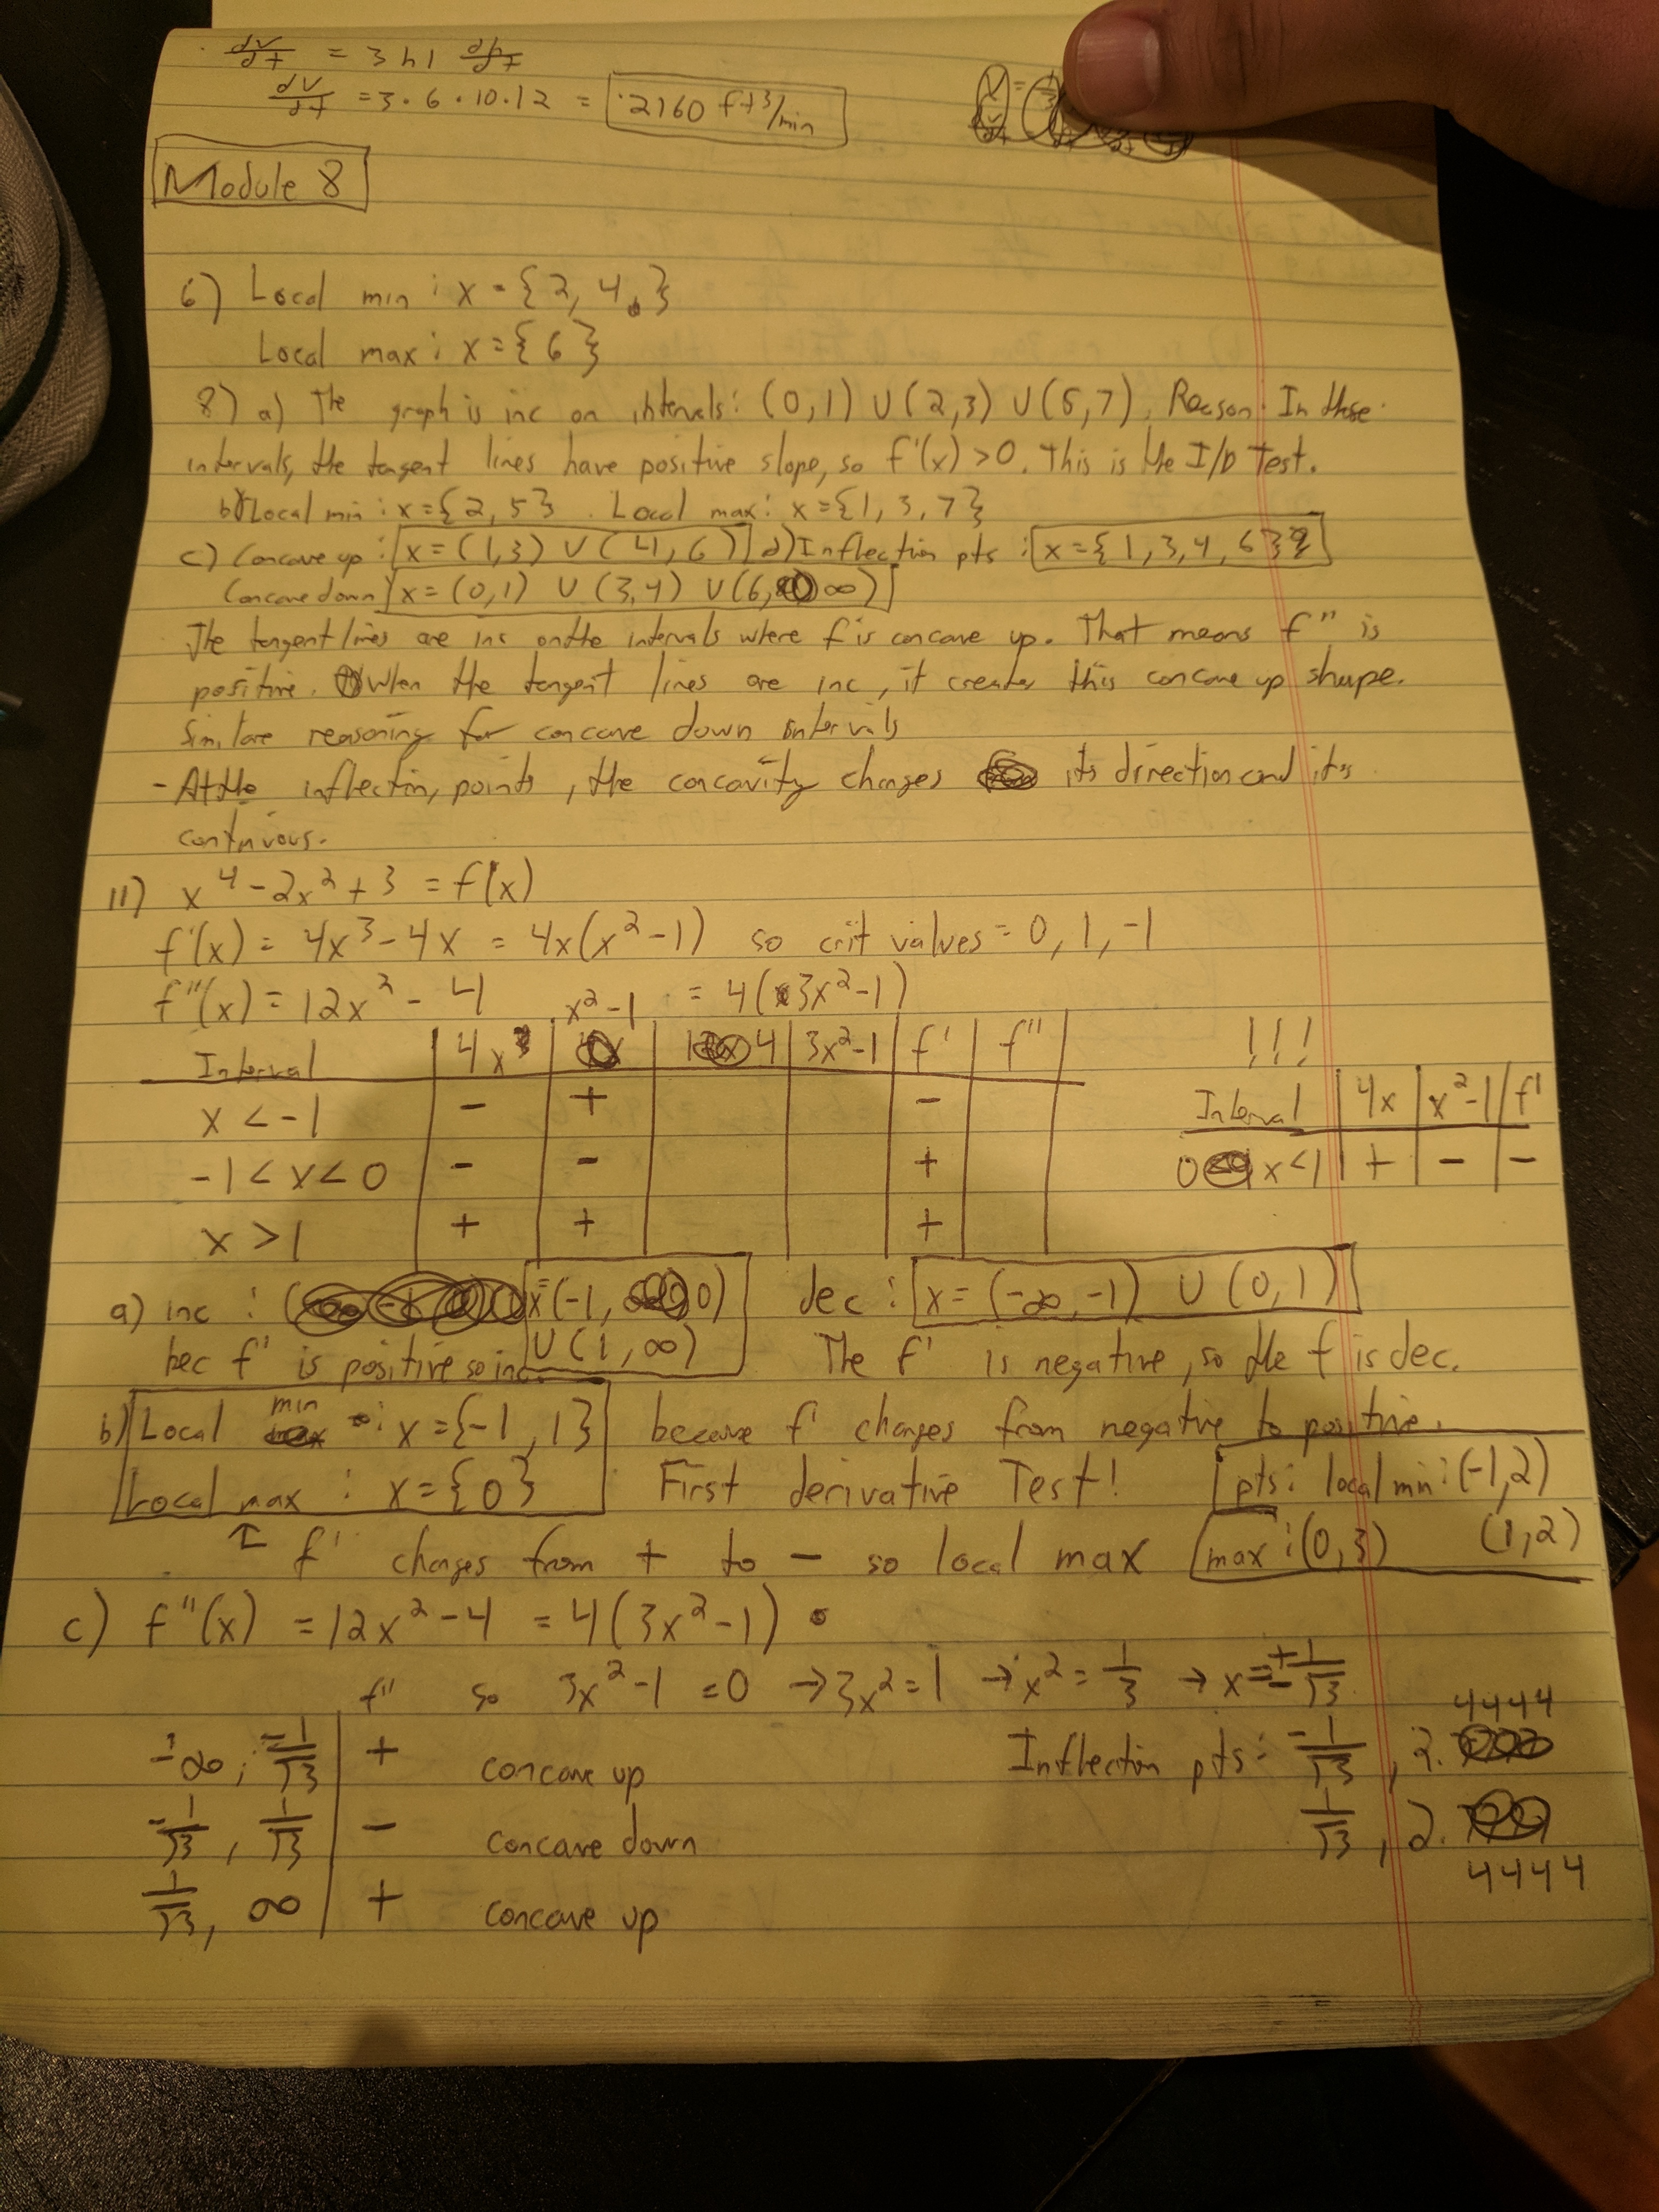 dV/dt = 3hl dh/dt
dV/dt = 3·6·10·12 = 2160 ft³/min
Module 8
6) Local min : x = {2, 4}
Local max : x = {6}
8) a) The graph is inc on intervals: (0,1) ∪ (2,3) ∪ (5,7). Reason: In these
intervals, the tangent lines have positive slope, so f'(x) > 0. This is the I/D Test.
b) Local min : x = {2, 5}. Local max : x = {1, 3, 7}
c) Concave up : x = (1,3) ∪ (4,6) d) Inflection pts : x = {1, 3, 4, 6}
Concave down x = (0,1) ∪ (3,4) ∪ (6, ∞)
The tangent lines are inc on the intervals where f is concave up. That means f'' is
positive. When the tangent lines are inc, it creates this concave up shape.
Similare reasoning for concave down intervals
- At the inflection, points, the concavity changes its direction and it's
continuous.
11) x⁴ - 2x² + 3 = f(x)
f'(x) = 4x³ - 4x = 4x(x² - 1) so crit values = 0, 1, -1
f''(x) = 12x² - 4 = 4(3x² - 1)
Interval | 4x | x²-1 | 4 | 3x²-1 | f' | f''
x < -1 | - | + | | | - |
-1 < x < 0 | - | - | | | + |
x > 1 | + | + | | | + |
!!!
Interval | 4x | x²-1 | f'
0 < x < 1 | + | - | -
a) inc : x = (-1, 0) dec : x = (-∞, -1) ∪ (0, 1)
∪ (1, ∞)
bec f' is positive so inc. The f' is negative, so the f is dec.
b) Local min : x = {-1, 1} because f' changes from negative to positive.
Local max : x = {0} First derivative Test! pts: local min : (-1,2)
(1,2)
↑ f' changes from + to - so local max max : (0,3)
c) f''(x) = 12x² - 4 = 4(3x² - 1)
f'' so 3x² - 1 = 0 → 3x² = 1 → x² = 1/3 → x = ± 1/√3
-∞, -1/√3 | + concave up Inflection pts: -1/√3, 2.4444
-1/√3, 1/√3 | - concave down 1/√3, 2.4444
1/√3, ∞ | + concave up